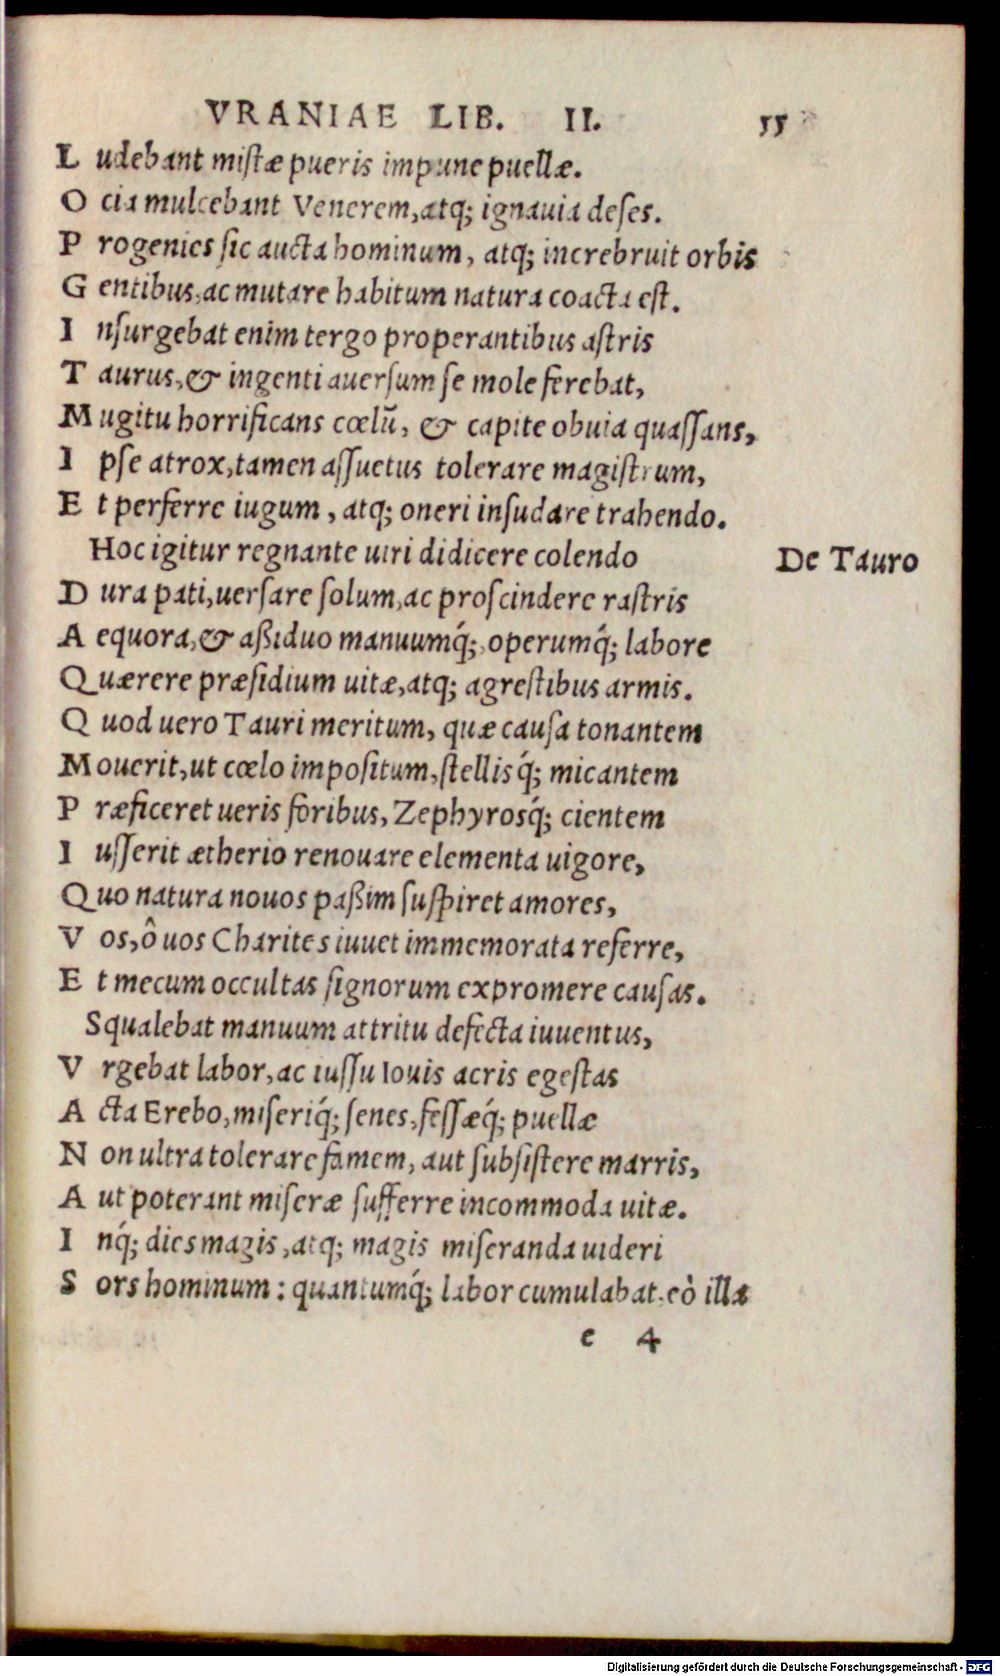 VRANIAE LIB. II. 55
L udebant mistæ pueris impune puellæ.
O cia mulcebant Venerem, atq; ignauia deses.
P rogenies sic aucta hominum, atq; increbruit orbis
G entibus, ac mutare habitum natura coacta est.
I nsurgebat enim tergo properantibus astris
T aurus, & ingenti auersum se mole ferebat,
M ugitu horrificans cœlũ, & capite obuia quassans,
I pse atrox, tamen assuetus tolerare magistrum,
E t perferre iugum, atq; oneri insudare trahendo.
Hoc igitur regnante uiri didicere colendo
De Tauro
D ura pati, uersare solum, ac proscindere rastris
A equora, & aßiduo manuumq́;, operumq́; labore
Q uærere præsidium uitæ, atq; agrestibus armis.
Q uod uero Tauri meritum, quæ causa tonantem
M ouerit, ut cœlo impositum, stellisq́; micantem
P ræficeret ueris foribus, Zephyrosq́; cientem
I usserit ætherio renouare elementa uigore,
Q uo natura nouos paßim suspiret amores,
V os, ô uos Charites iuuet immemorata referre,
E t mecum occultas signorum expromere causas.
Squalebat manuum attritu defecta iuuentus,
V rgebat labor, ac iussu Iouis acris egestas
A cta Erebo, miseriq́; senes, fessæq́; puellæ
N on ultra tolerare famem, aut subsistere marris,
A ut poterant miseræ sufferre incommoda uitæ.
I nq́; dies magis, atq; magis miseranda uideri
S ors hominum: quantumq́; labor cumulabat, eò illa
e 4
Digitalisierung gefördert durch die Deutsche Forschungsgemeinschaft - DFG